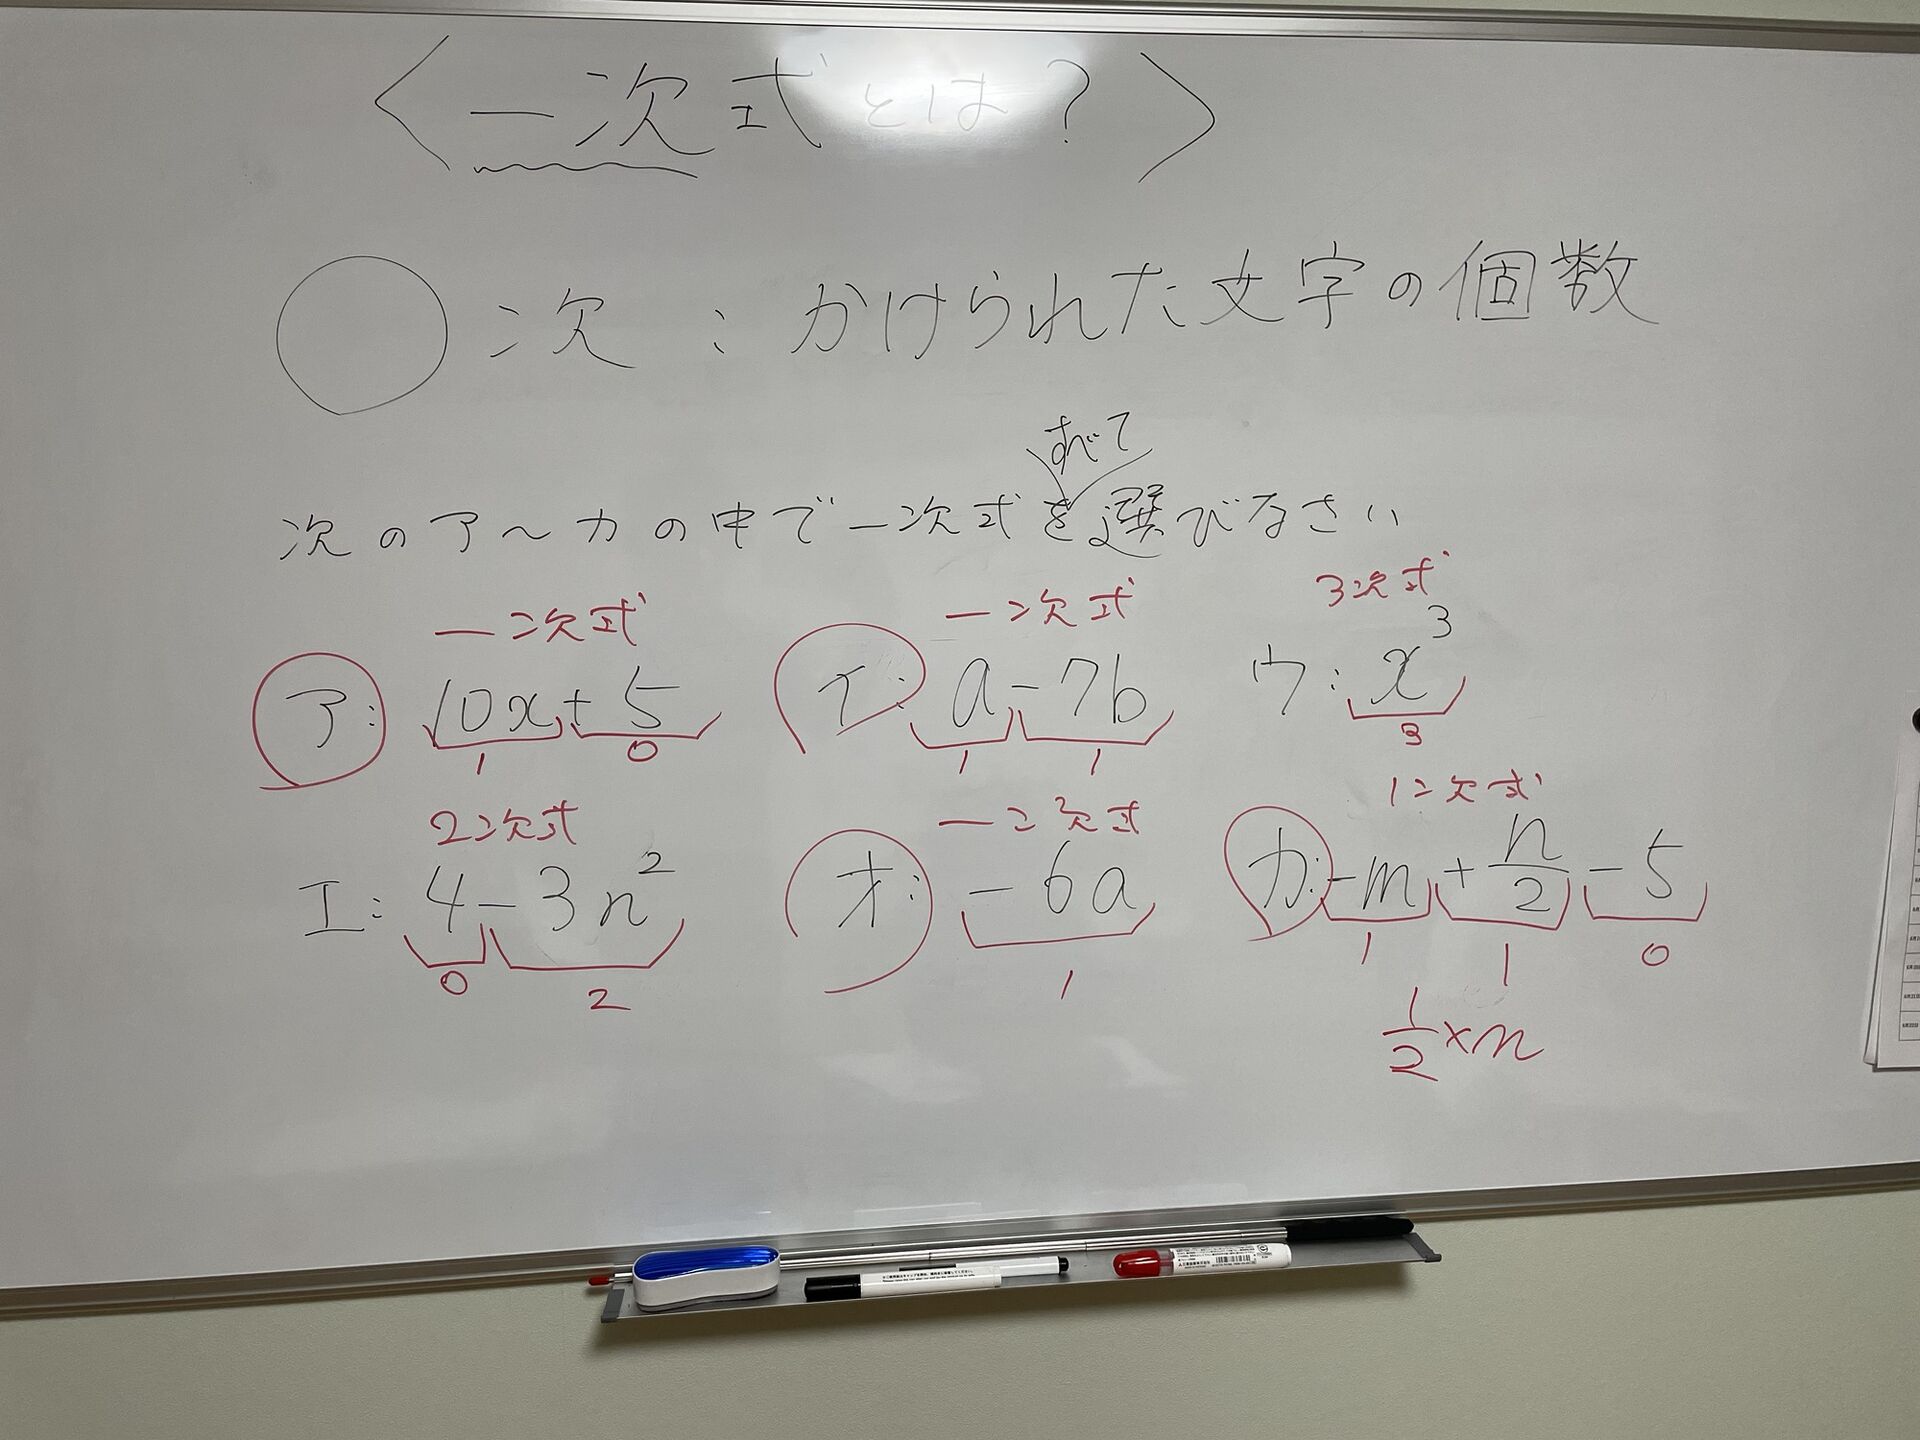 〈一次式とは？〉
◯次：かけられた文字の個数
すべて
次のア〜カの中で一次式を選びなさい
一次式 一次式 3次式
ア：10x+5 イ：a-7b ウ：x³
1 0 1 1 3
2次式 一次式 1次式
エ：4-3n² オ：-6a カ：-m+n/2-5
0 2 1 1 1 0
1/2×n